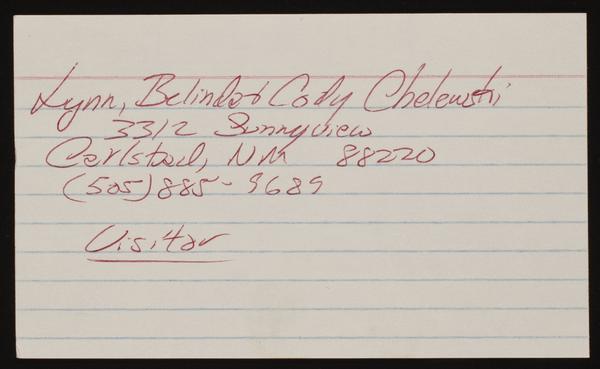 Lynn, Belinda & Cody Chelewski
3312 Sunnyview
Carlsbad, NM 88220
(505) 885-9689
Visitor